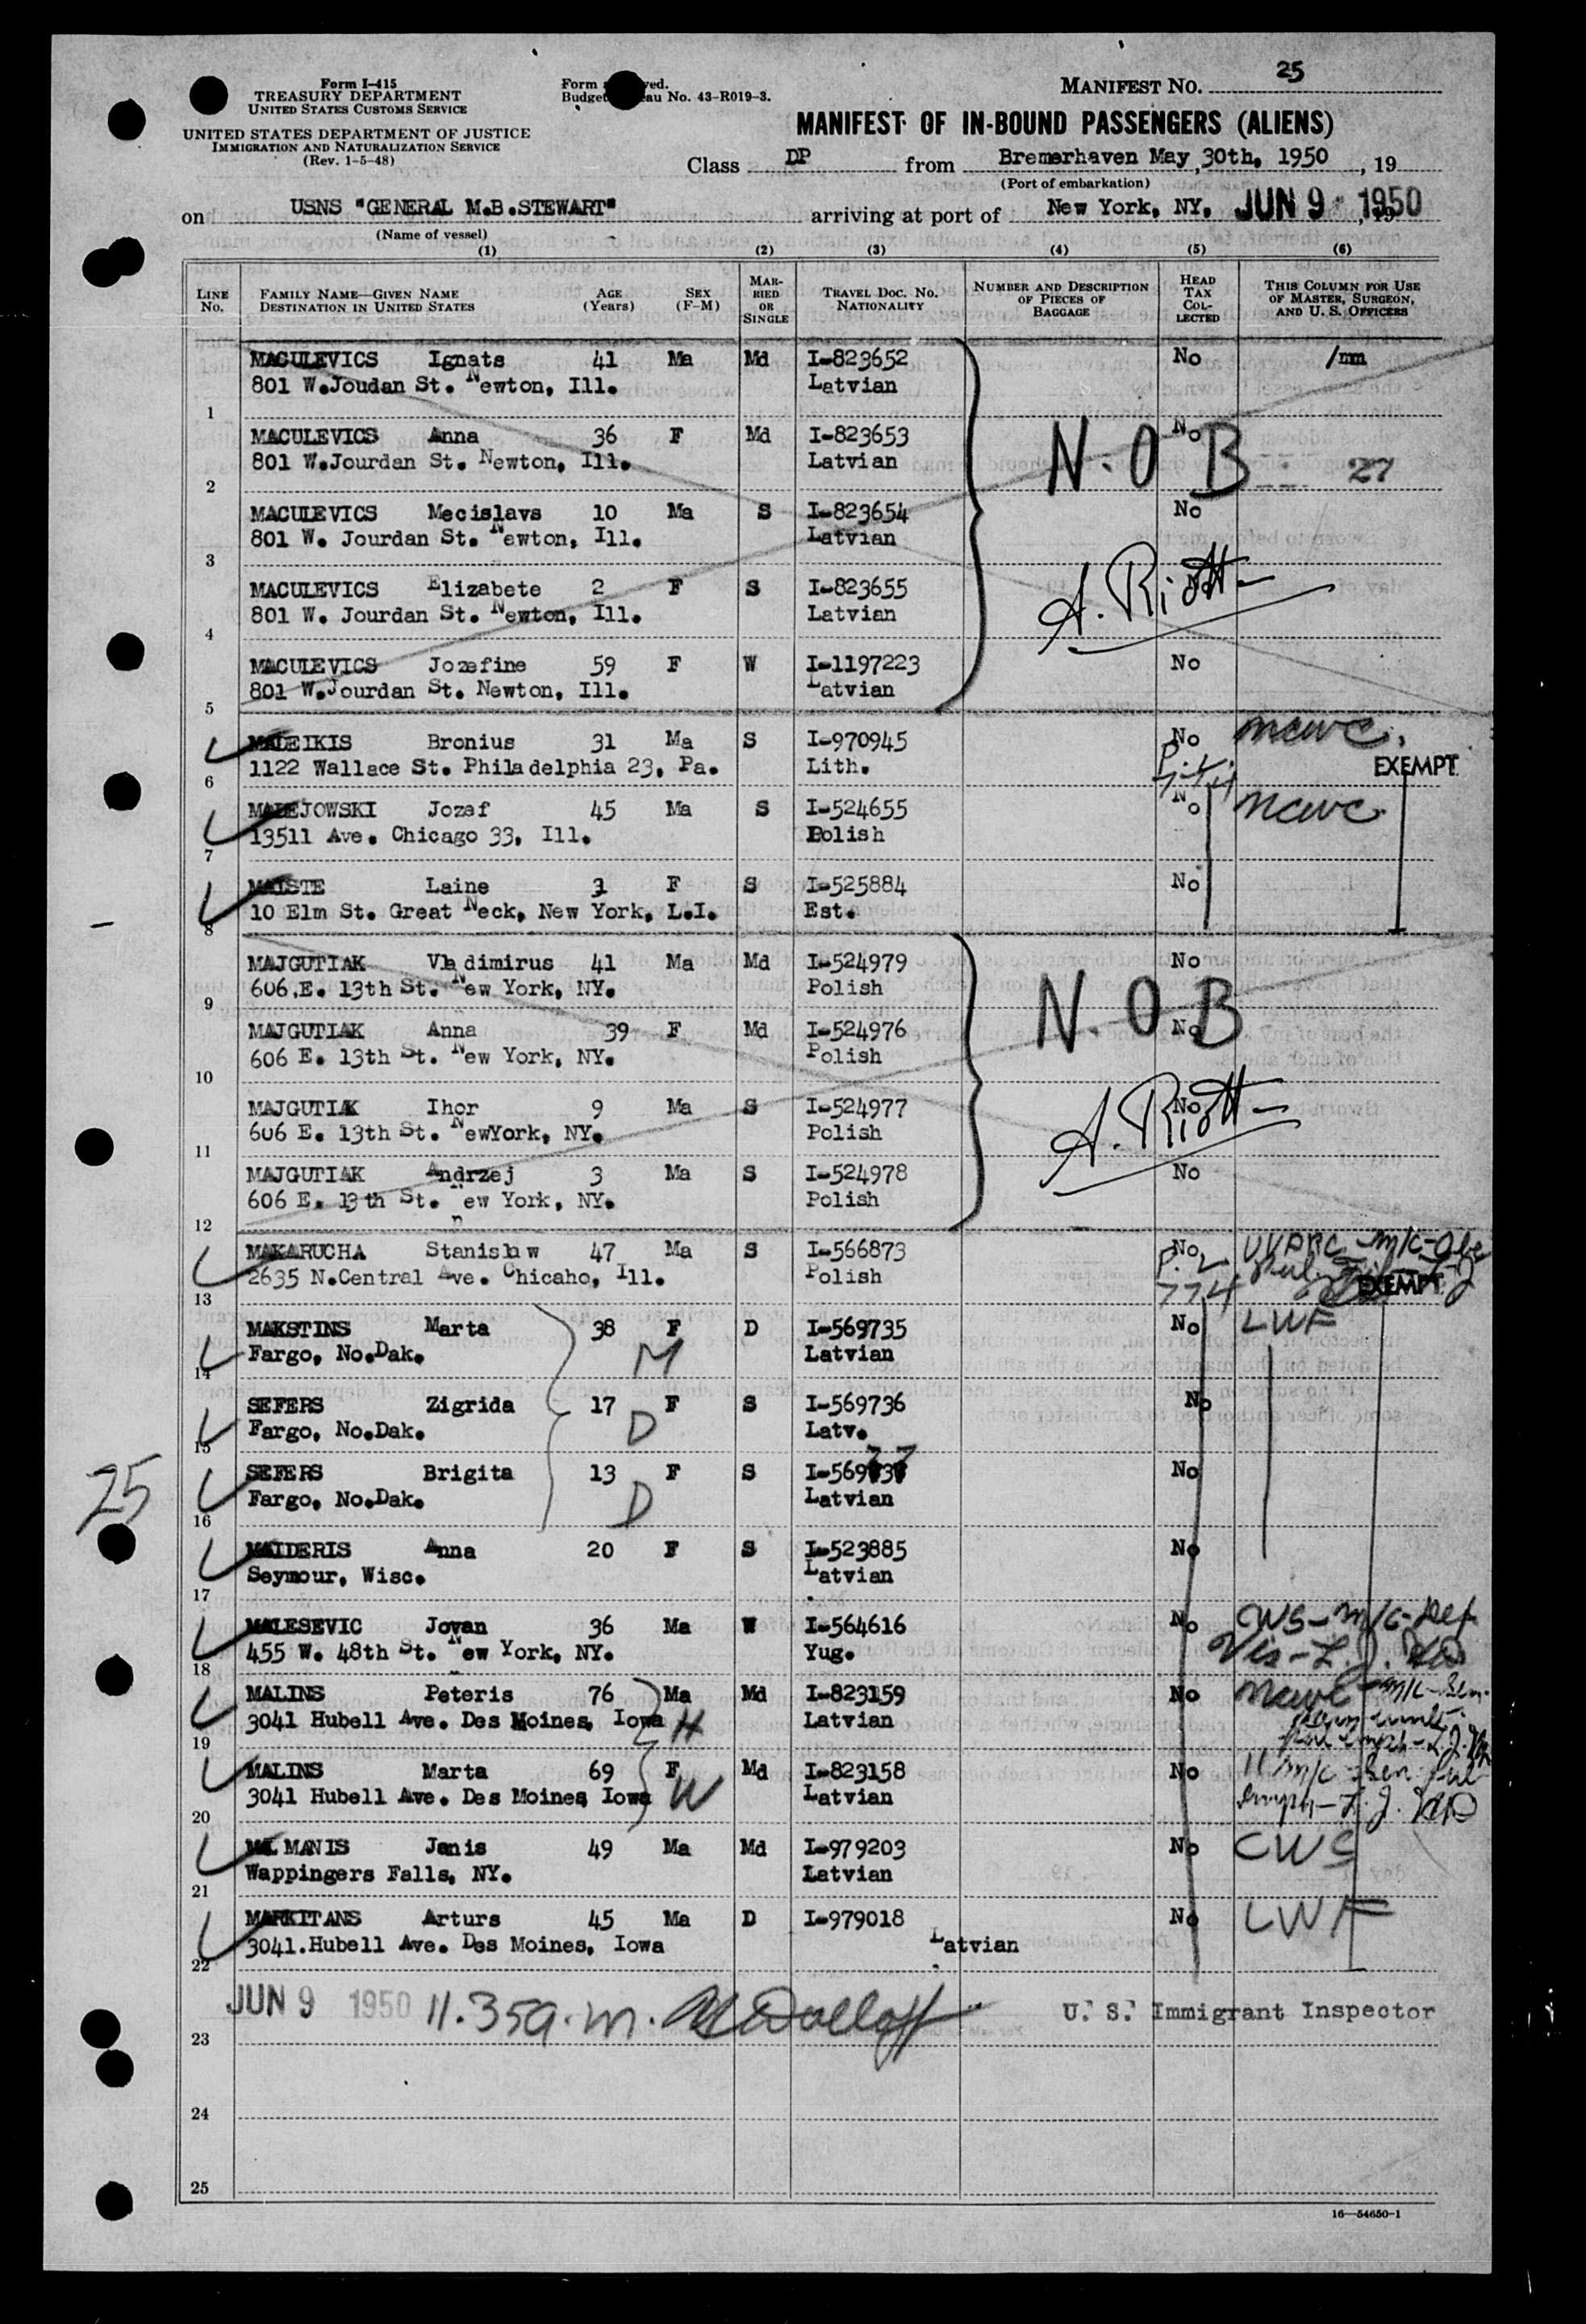 Form I-415
TREASURY DEPARTMENT
UNITED STATES CUSTOMS SERVICE
UNITED STATES DEPARTMENT OF JUSTICE
IMMIGRATION AND NATURALIZATION SERVICE
(Rev. 1-5-48)
Form
Budget No. 43-R019-3.
MANIFEST NO. 25
MANIFEST OF IN-BOUND PASSENGERS (ALIENS)
Class DP from Bremerhaven May 30th, 1950, 19
(Port of embarkation)
on USNS "GENERAL M.B.STEWART" arriving at port of New York, NY. JUN 9 1950, 19
(Name of vessel)
(1) (2) (3) (4) (5) (6)
LINE No. FAMILY NAME—GIVEN NAME DESTINATION IN UNITED STATES AGE (Years) SEX (F-M) MARRIED OR SINGLE TRAVEL DOC. NO. NATIONALITY NUMBER AND DESCRIPTION OF PIECES OF BAGGAGE HEAD TAX COLLECTED THIS COLUMN FOR USE OF MASTER, SURGEON, AND U. S. OFFICERS
MACULEVICS Ignats 41 Ma Md I-823652 No /nm
801 W.Joudan St. Newton, Ill. Latvian
1
MACULEVICS Anna 36 F Md I-823653 No
801 W.Jourdan St. Newton, Ill. Latvian N.O B 27
2
MACULEVICS Mecislavs 10 Ma S I-823654 No
801 W. Jourdan St. Newton, Ill. Latvian
3
MACULEVICS Elizabete 2 F S I-823655 No
801 W. Jourdan St. Newton, Ill. Latvian A. Riott
4
MACULEVICS Jozefine 59 F W I-1197223 No
801 W.Jourdan St. Newton, Ill. Latvian
5
MALEIKIS Bronius 31 Ma S I-970945 No ncwc.
1122 Wallace St. Philadelphia 23, Pa. Lith. P.L. 774 EXEMPT
6
MALEJOWSKI Jozef 45 Ma S I-524655 No ncwc
13511 Ave. Chicago 33, Ill. Polish
7
MAISTE Laine 3 F S I-525884 No
10 Elm St. Great Neck, New York, L.I. Est.
8
MAJGUTIAK Vladimirus 41 Ma Md I-524979 No
606.E. 13th St. New York, NY. Polish
9
MAJGUTIAK Anna 39 F Md I-524976 No N.O.B
606 E. 13th St. New York, NY. Polish
10
MAJGUTIK Ihor 9 Ma S I-524977 No
606 E. 13th St. NewYork, NY. Polish A. Riott
11
MAJGUTIAK Andrzej 3 Ma S I-524978 No
606 E. 13th St. New York, NY. Polish
12
MAKARUCHA Stanislaw 47 Ma S I-566873 No
2635 N.Central Ave. Chicaho, Ill. Polish P.L. 774 EXEMPT
13
MAKSTINS Marta 38 F D I-569735 No LWF
Fargo, No.Dak. M Latvian
14
SEFERS Zigrida 17 F S I-569736 No
Fargo, No.Dak. D Latv.
15
SEFERS Brigita 13 F S I-569737 No
Fargo, No.Dak. D Latvian
16
25
MAIDERIS Anna 20 F S I-523885 No
Seymour, Wisc. Latvian
17
MALESEVIC Jovan 36 Ma W I-564616 No CWS-m/c-Def
455 W. 48th St. New York, NY. Yug. Vis-L.J.
18
MALINS Peteris 76 Ma Md I-823159 No ncwc m/c-Sen.
3041 Hubell Ave. Des Moines, Iowa H Latvian
19
MALINS Marta 69 F Md I-823158 No 11 m/c-Sen. Pul
3041 Hubell Ave. Des Moines Iowa W Latvian Emph-L.J.
20
MALMANIS Janis 49 Ma Md I-979203 No CWS
Wappingers Falls, NY. Latvian
21
MARKITANS Arturs 45 Ma D I-979018 No LWF
3041.Hubell Ave. Des Moines, Iowa Latvian
22
JUN 9 1950 11.35a.m. U. S. Immigrant Inspector
23
24
25
16—54650-1